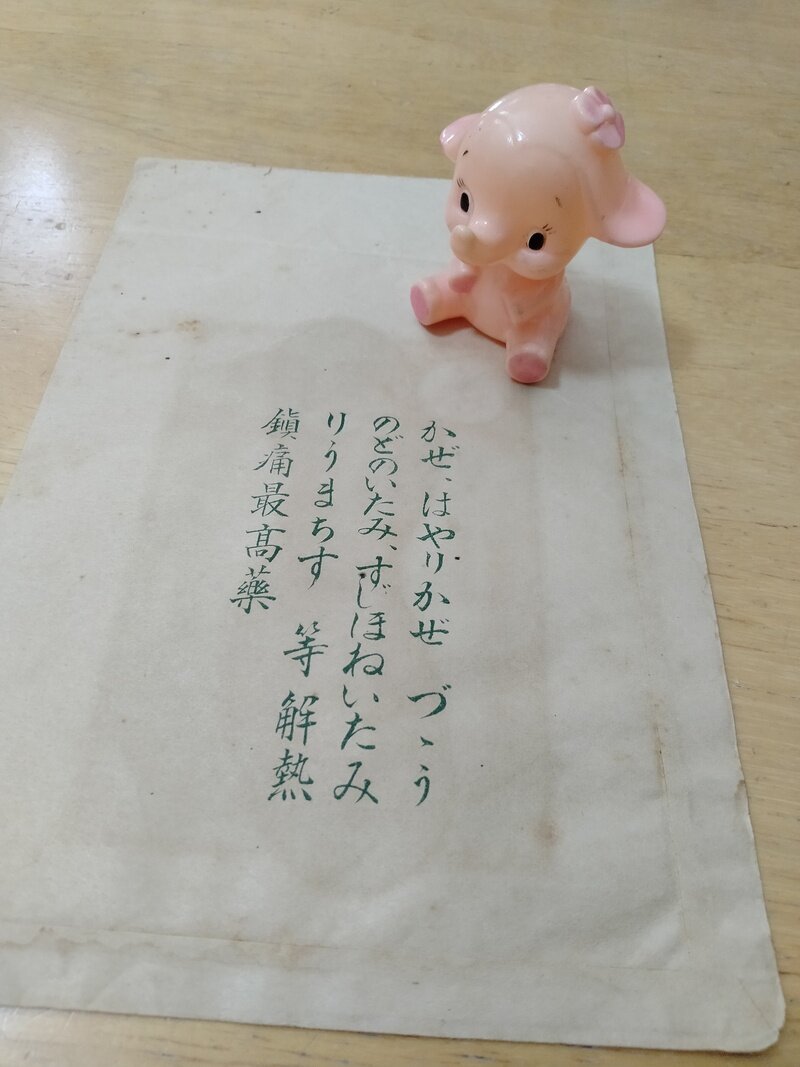 かぜ、はやりかぜ づゝう
のどのいたみ、すじほねいたみ
りうまちす 等 解熱
鎮痛最高藥